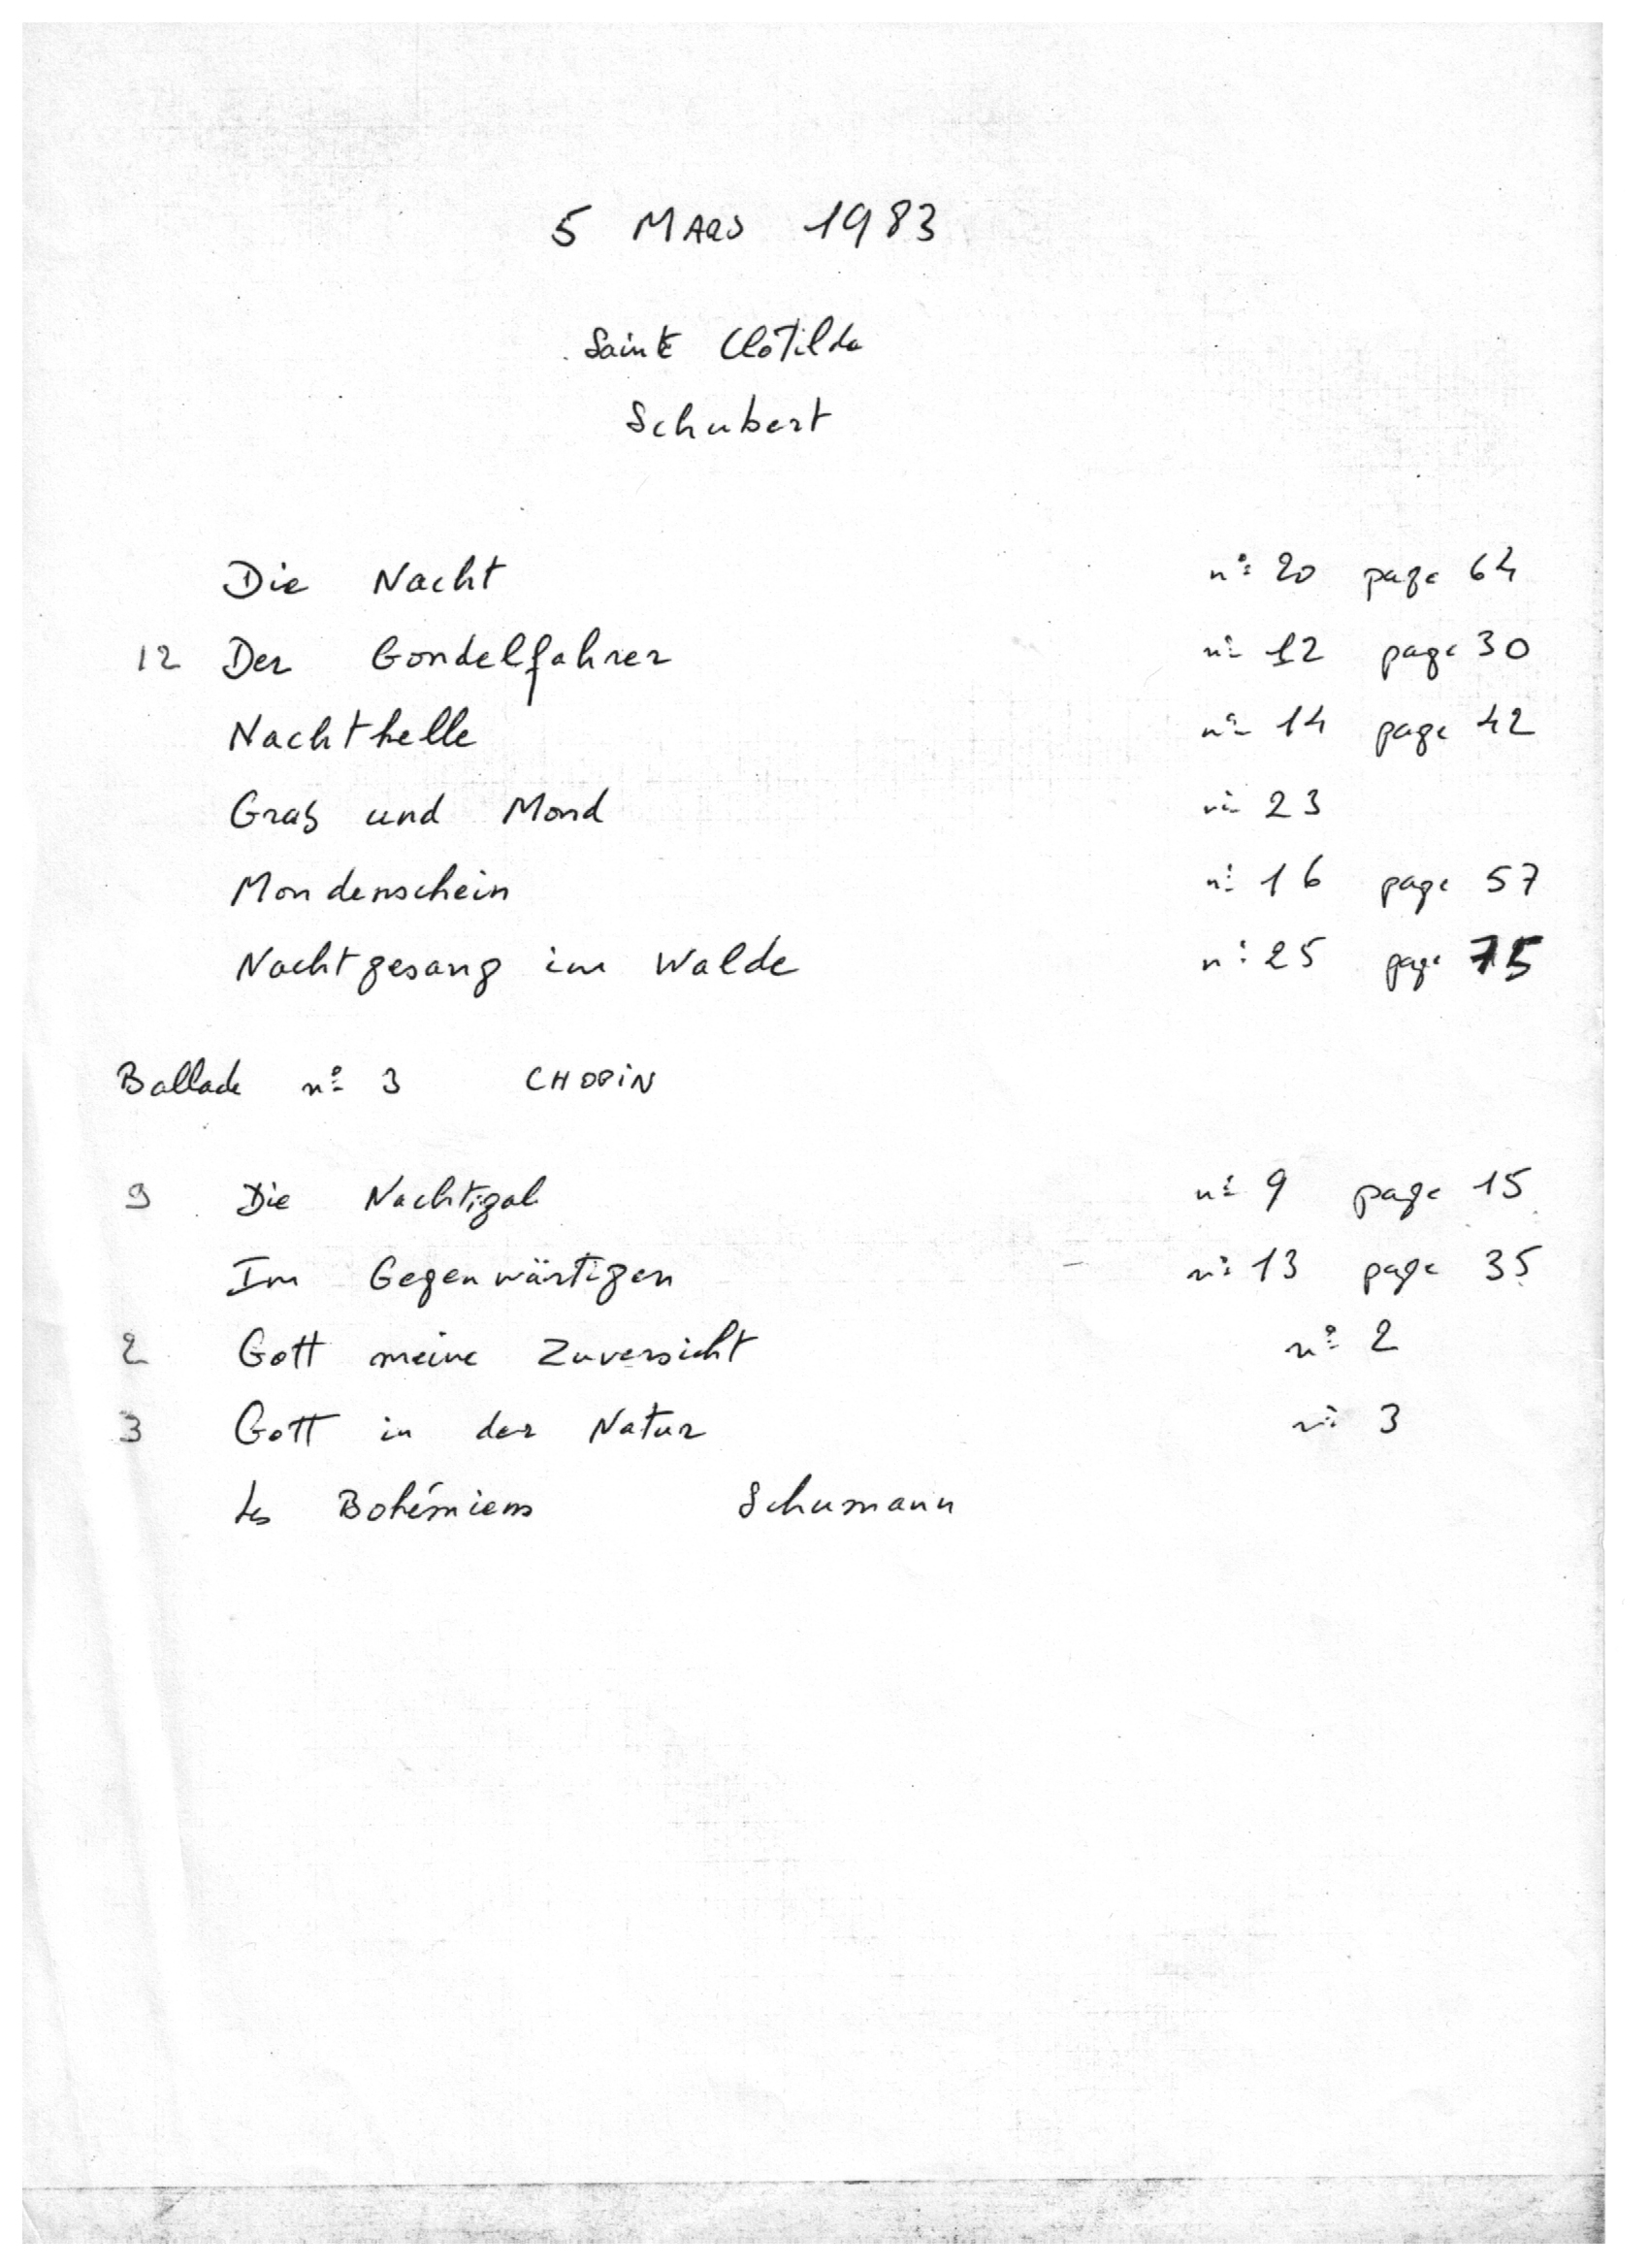 5 MARS 1983
Sainte Clotilde
Schubert
Die Nacht n° 20 page 64
12 Der Gondelfahrer n° 12 page 30
Nachthelle n° 14 page 42
Grab und Mond n° 23
Mondenschein n° 16 page 57
Nachtgesang im Walde n° 25 page 75
Ballade n° 3 CHOPIN
9 Die Nachtigal n° 9 page 15
Im Gegenwärtigen n° 13 page 35
2 Gott meine Zuversicht n° 2
3 Gott in der Natur n° 3
Les Bohémiens Schumann